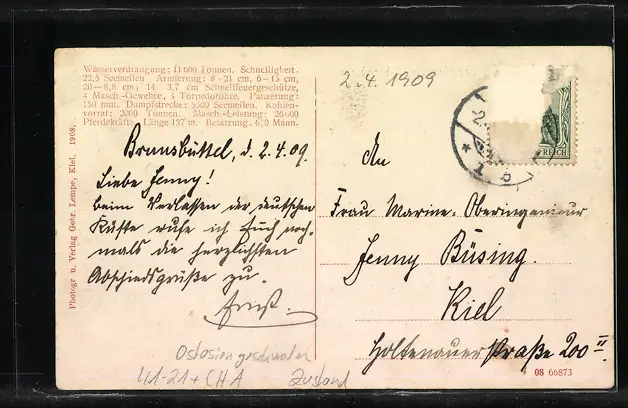 Wasserverdrängung: 11600 Tonnen. Schnelligkeit.
22,5 Seemeilen Armierung: 8-21 cm, 6-15 cm,
20-8,8 cm, 14 3,7 cm Schnellfeuergeschütze,
4 Masch.-Gewehre, 4 Torpedorohre. Panzerung:
150 mm. Dampfstrecke: 5500 Seemeilen. Kohlen-
vorrat: 2000 Tonnen. Masch.-Leistung: 26000
Pferdekräfte. Länge 137 m. Besatzung. 650 Mann.
Photogr u. Verlag Gebr. Lempe, Kiel. 1908.
2.4.1909
REICH
Brunsbüttel, d. 2.4.09.
Liebe Jenny!
Beim Verlassen der deutschen
Küste rufe ich Euch noch-
mals die herzlichsten
Abschiedsgrüße zu.
Ernst.
An
Frau Marine-Oberingenieur
Jenny Büsing.
Kiel
Holtenauerstraße 200 II
08 66873
Ostasiengeschwader
41-21+CHA Zustand